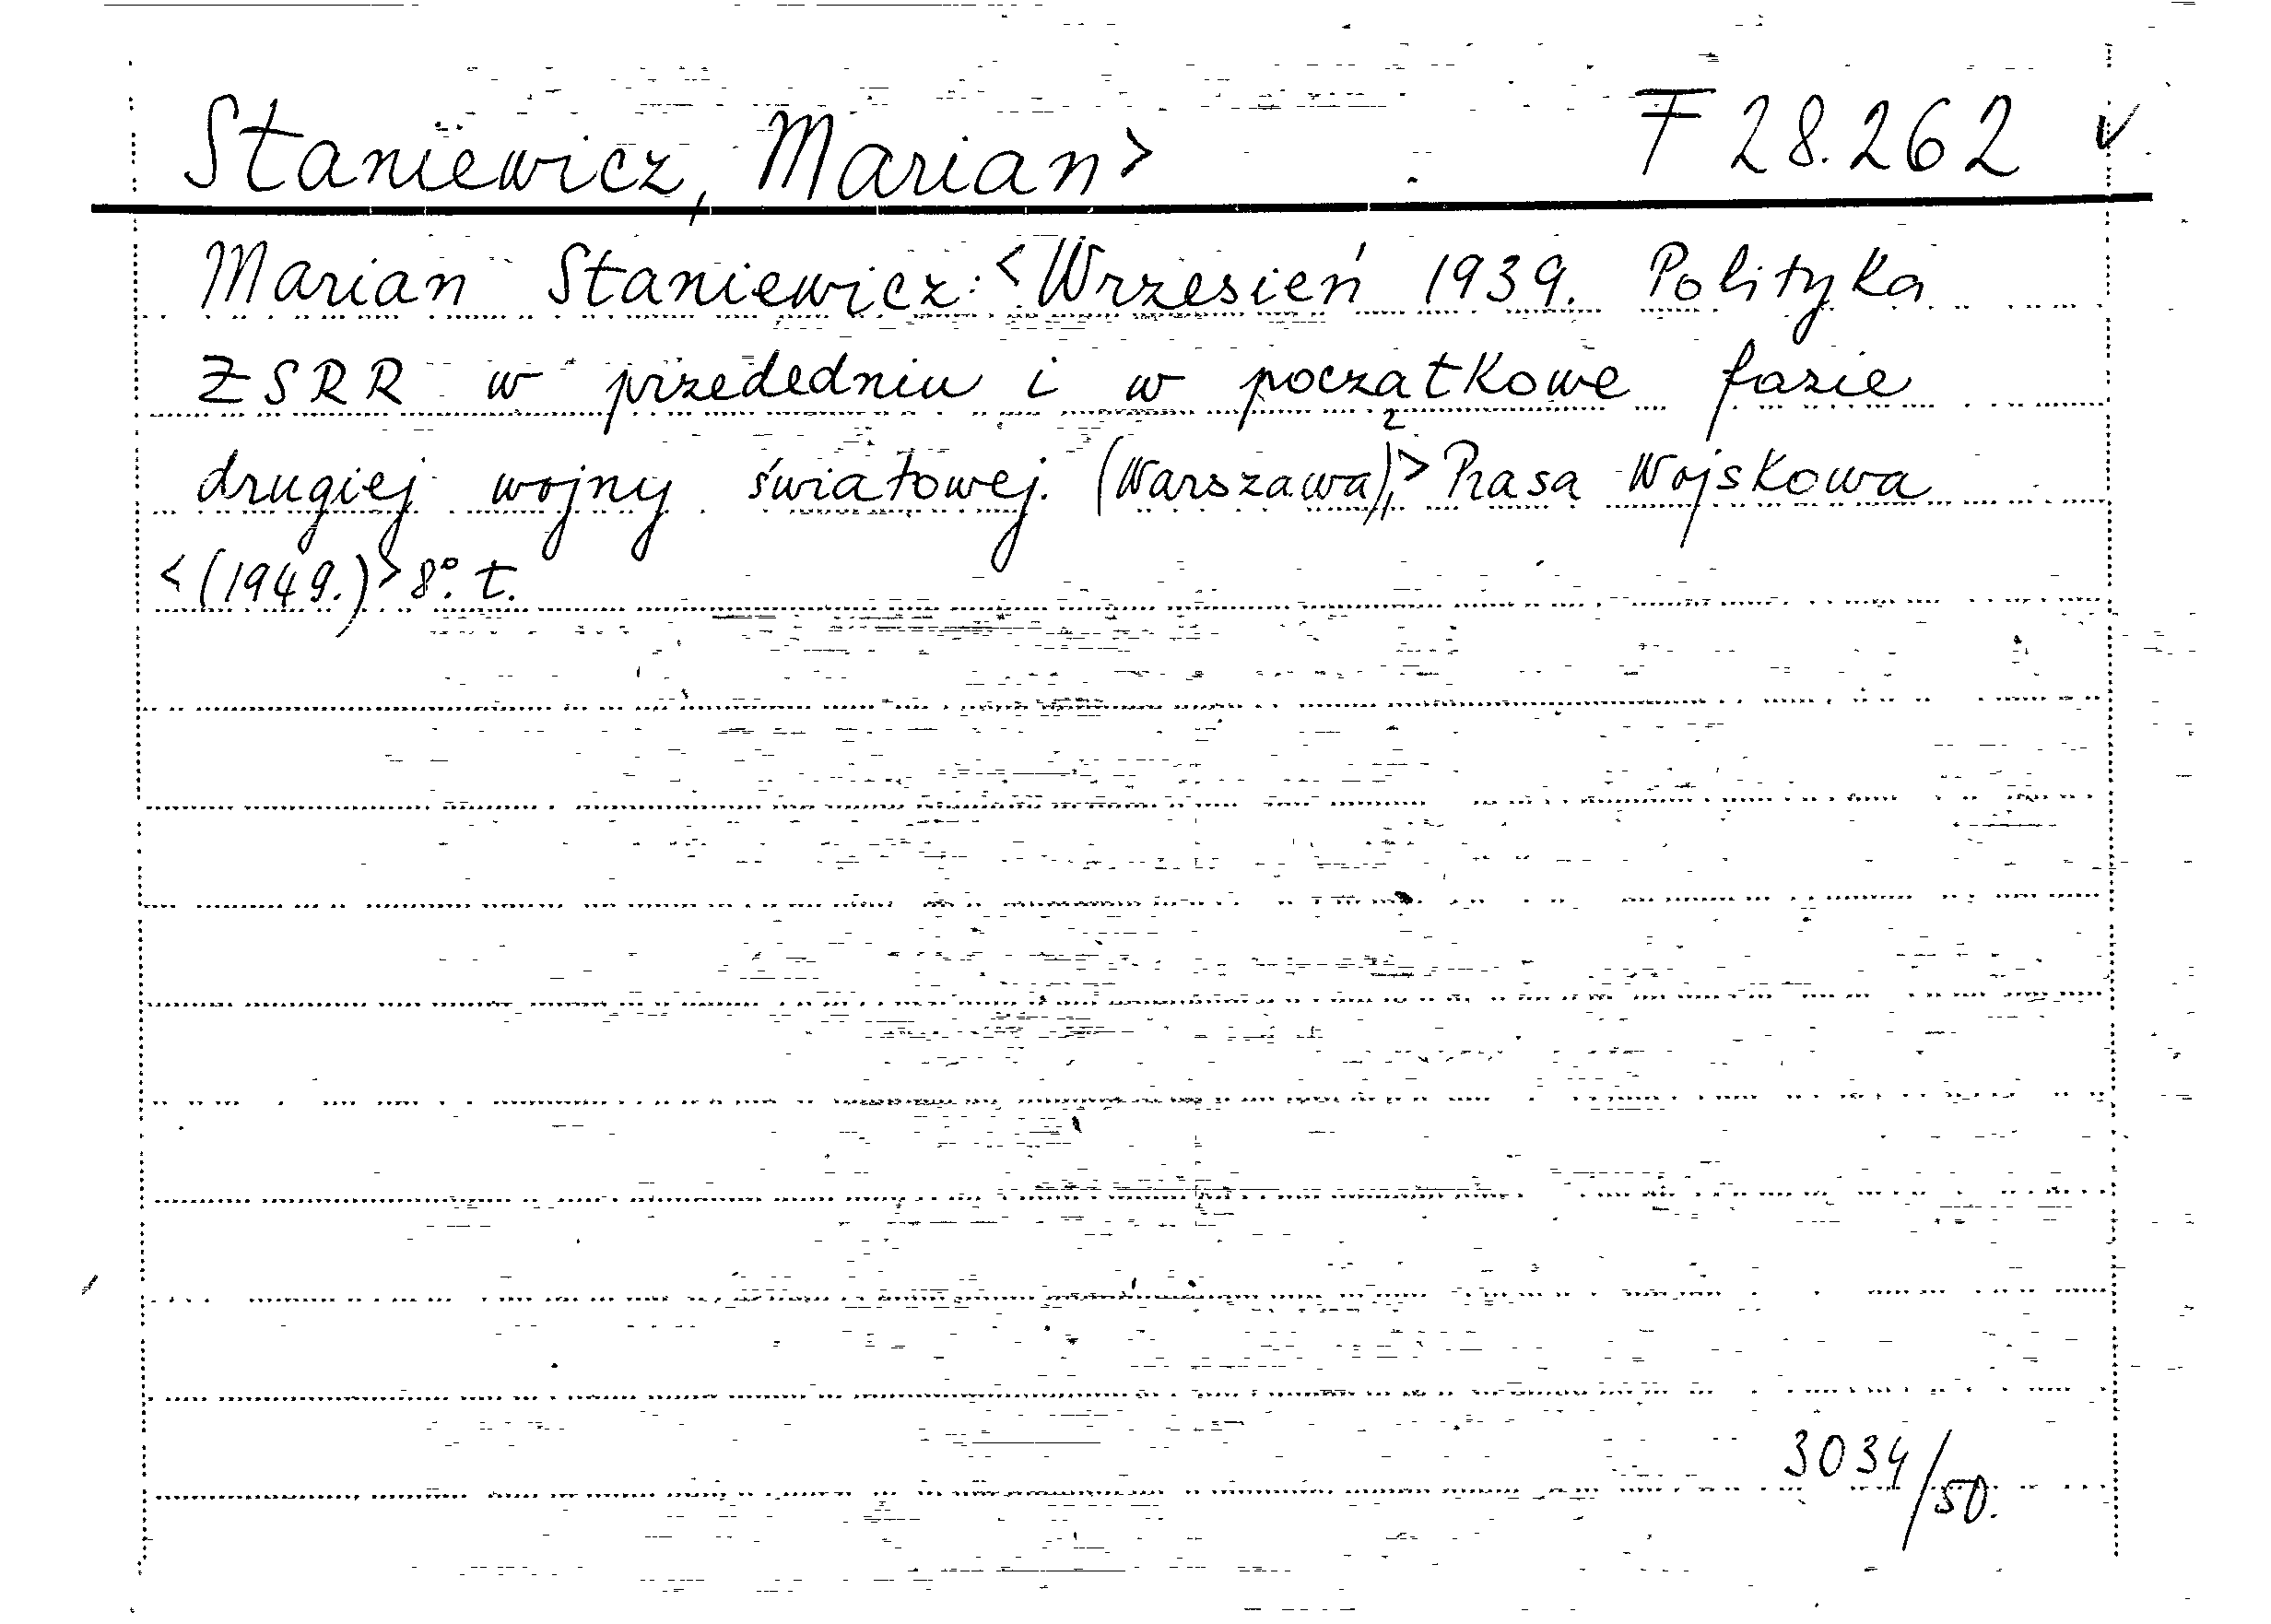 Staniewicz, Marian> F 28.262 ✓
Marian Staniewicz: <Wrzesień 1939. Polityka
ZSRR w przededniu i w początkowe fazie
drugiej wojny światowej. (Warszawa),> Prasa Wojskowa
<(1949.)> 8° t.
3034/50.